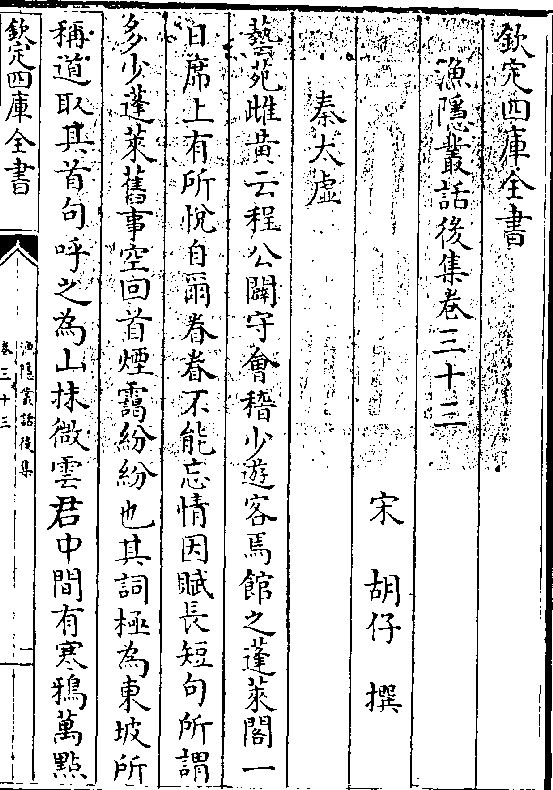 欽定四庫全書
漁隱叢話後集卷三十三
宋 胡仔 撰
秦太虛
藝苑雌黃云程公闢守會稽少遊客焉館之蓬萊閣一
日席上有所悅自爾眷眷不能忘情因賦長短句所謂
多少蓬萊舊事空回首煙靄紛紛也其詞極為東坡所
稱道取其首句呼之為山抹微雲君中間有寒鴉萬點
欽定四庫全書
漁隱叢話後集
卷三十三
一